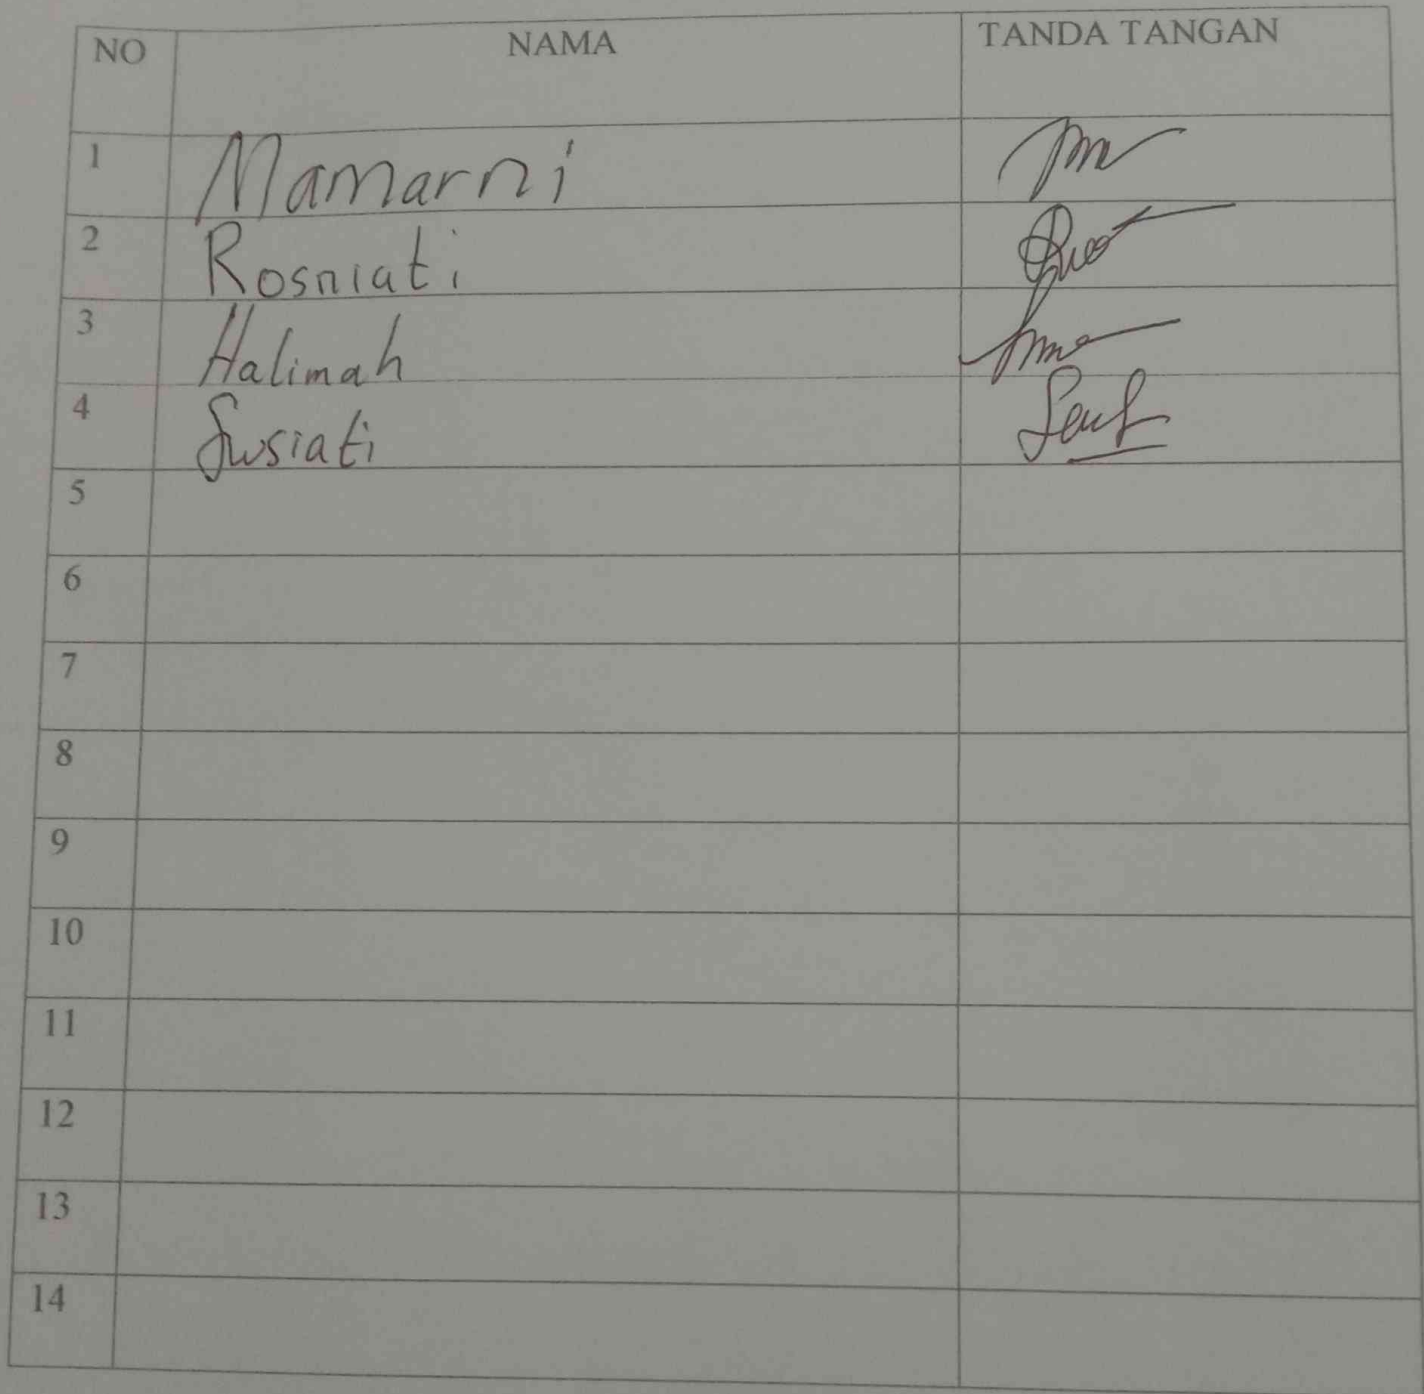 NO NAMA TANDA TANGAN
1 Mamarni
2 Rosniati
3 Halimah
4 Susiati
5
6
7
8
9
10
11
12
13
14